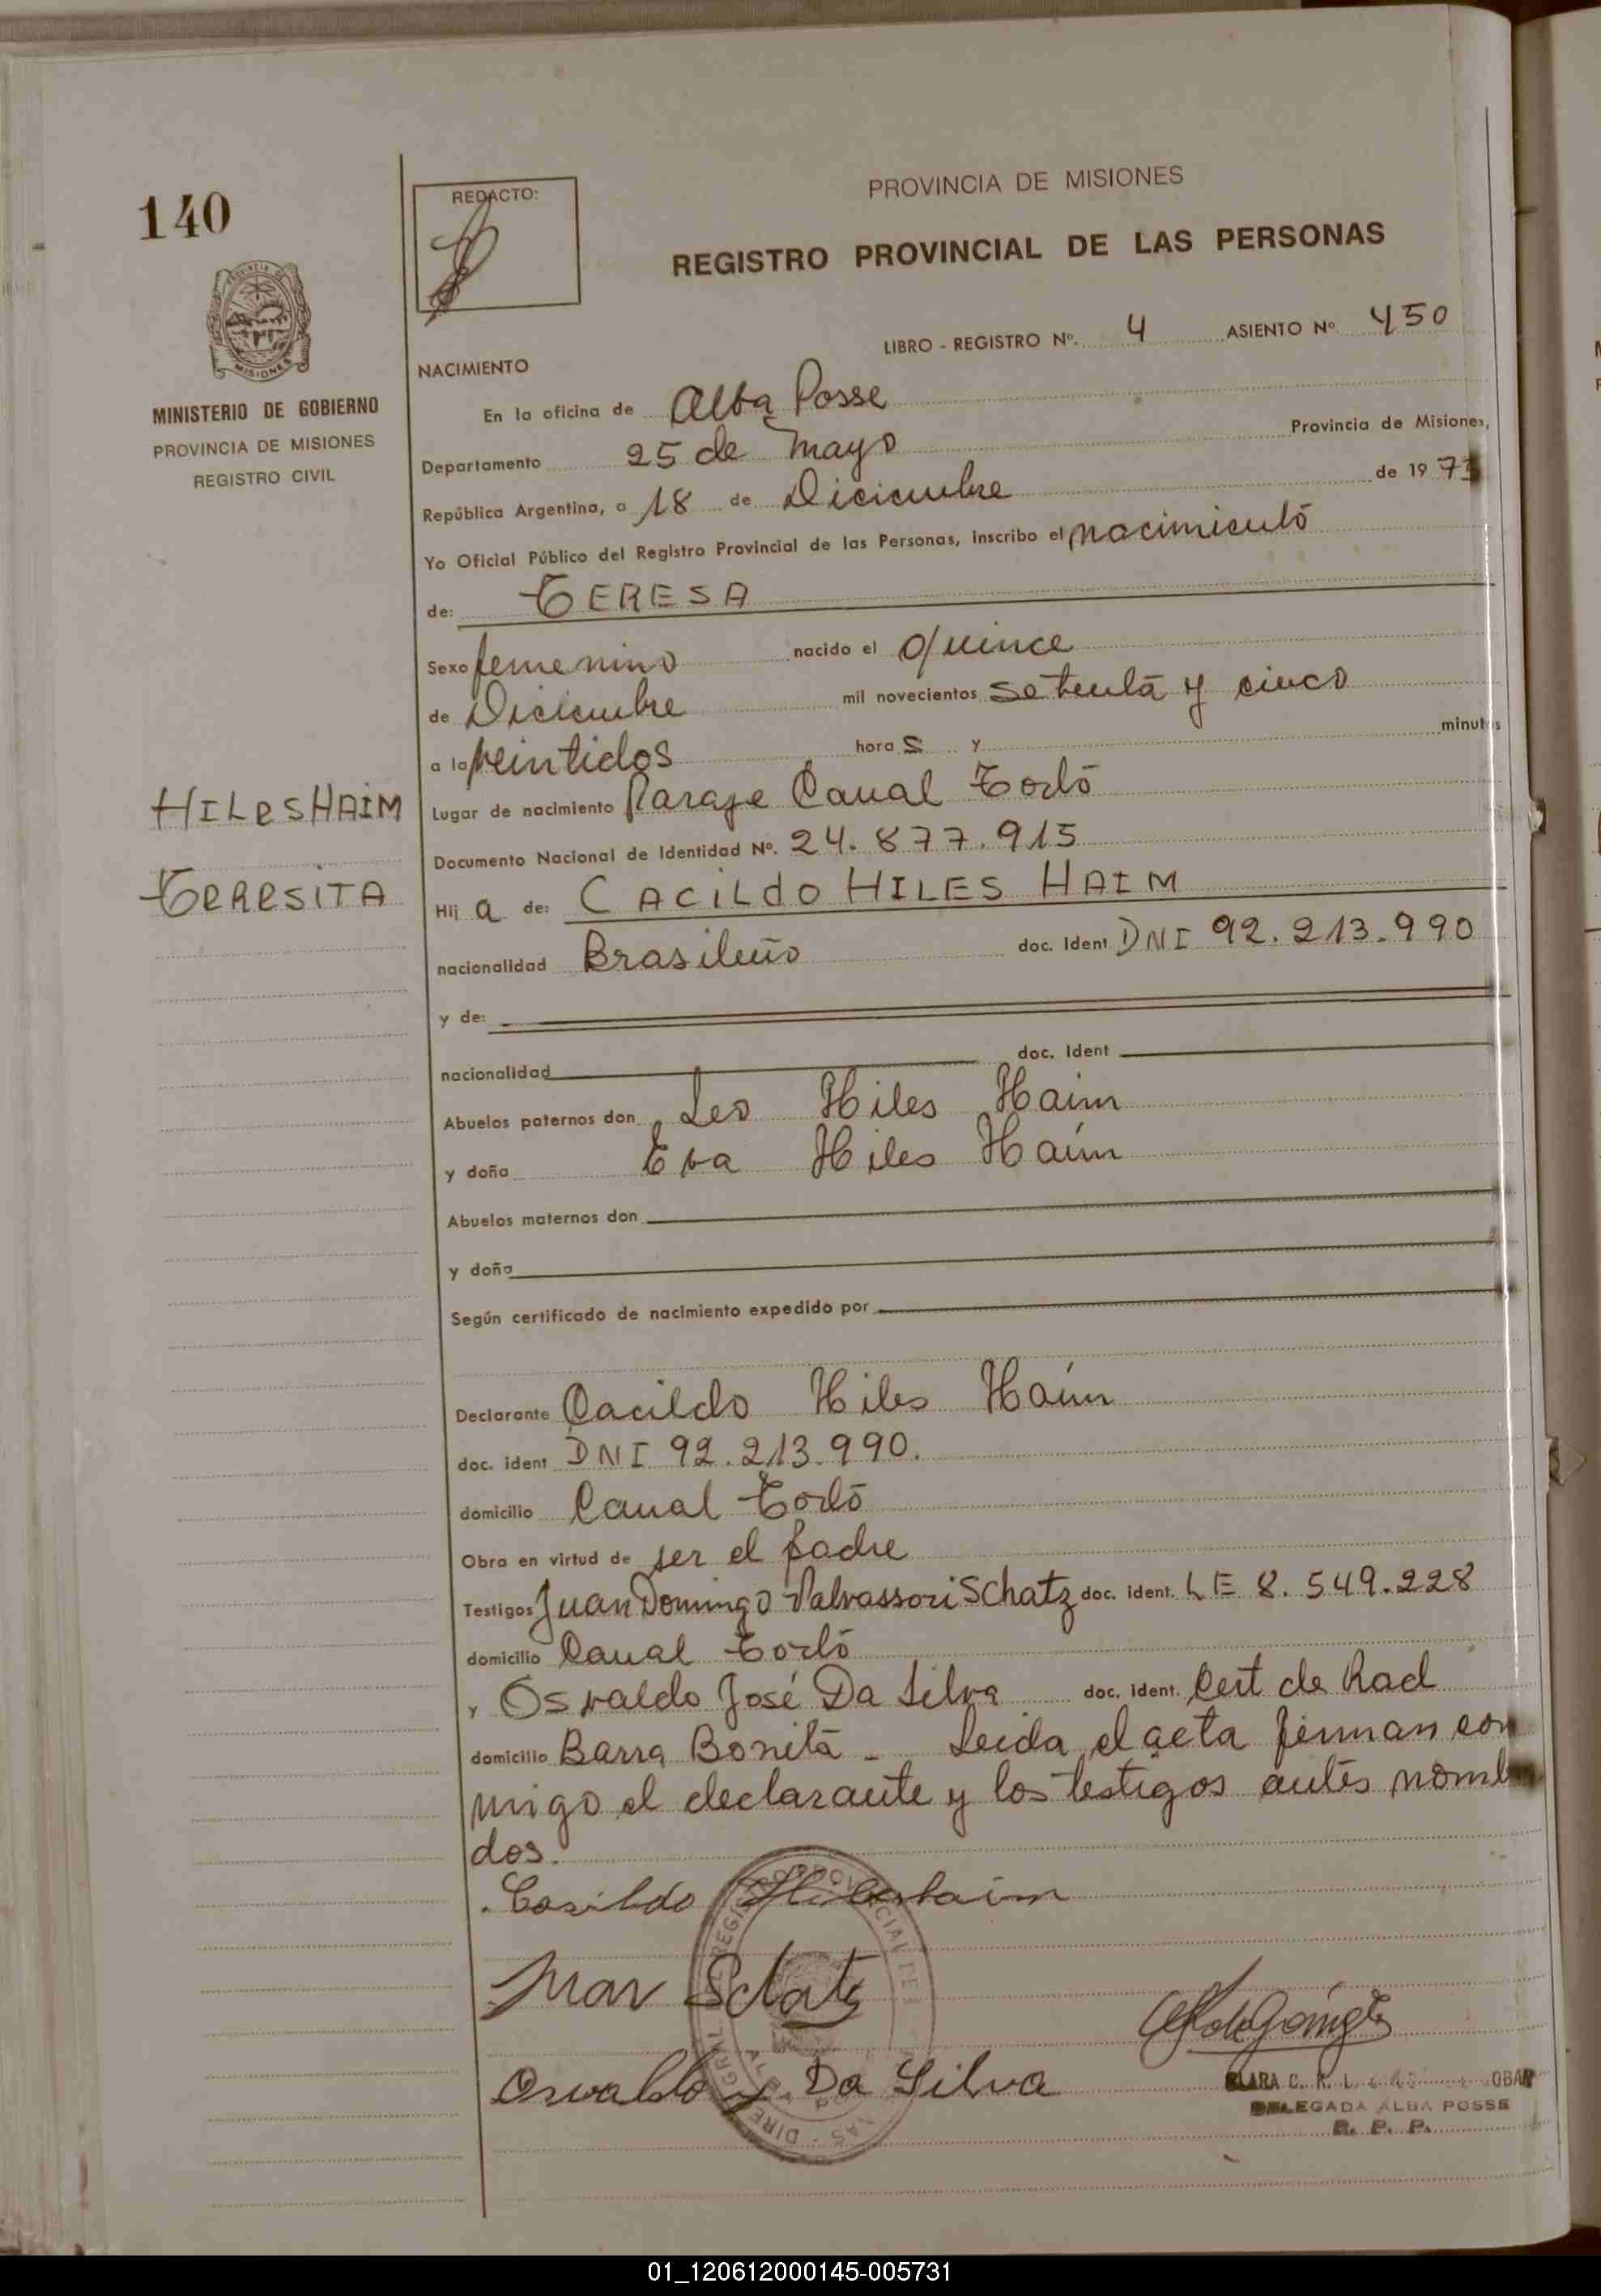 140
REDACTO:
PROVINCIA DE MISIONES
REGISTRO PROVINCIAL DE LAS PERSONAS
MISIONES
MINISTERIO DE GOBIERNO
PROVINCIA DE MISIONES
REGISTRO CIVIL
LIBRO - REGISTRO Nº. 4 ASIENTO Nº 450
NACIMIENTO
En la oficina de Alba Posse
Departamento 25 de Mayo Provincia de Misiones,
República Argentina, a 18 de Diciembre de 19 75
Yo Oficial Público del Registro Provincial de las Personas, inscribo el nacimiento
de: TERESA
Sexo femenino nacido el quince
de Diciembre mil novecientos setenta y cinco
a la veintidos hora s y minutos
HILESHAIM
Lugar de nacimiento Paraje Canal Torto
Documento Nacional de Identidad Nº. 24.877.915
TERESITA
Hij a de: CACILDO HILES HAIM
nacionalidad Brasileño doc. Ident DNI 92.213.990
y de:
nacionalidad doc. Ident
Abuelos paternos don Leo Hiles Haim
y doña Eva Hiles Haim
Abuelos maternos don
y doña
Según certificado de nacimiento expedido por
Declarante Cacildo Hiles Haim
doc. ident DNI 92.213.990.
domicilio Canal Torto
Obra en virtud de ser el padre
Testigos Juan Domingo Valvassori Schatz doc. ident. LE 8.549.228
domicilio Canal Torto
y Osvaldo José Da Silva doc. ident. Cert de Rad
domicilio Barra Bonita - Leida el acta firman con
migo el declarante y los testigos antes nombra
dos.
Casildo Hileshaim
Schatz
Osvaldo J Da Silva
CLARA C. R.
DELEGADA ALBA POSSE
R. P. P.
01_120612000145-005731